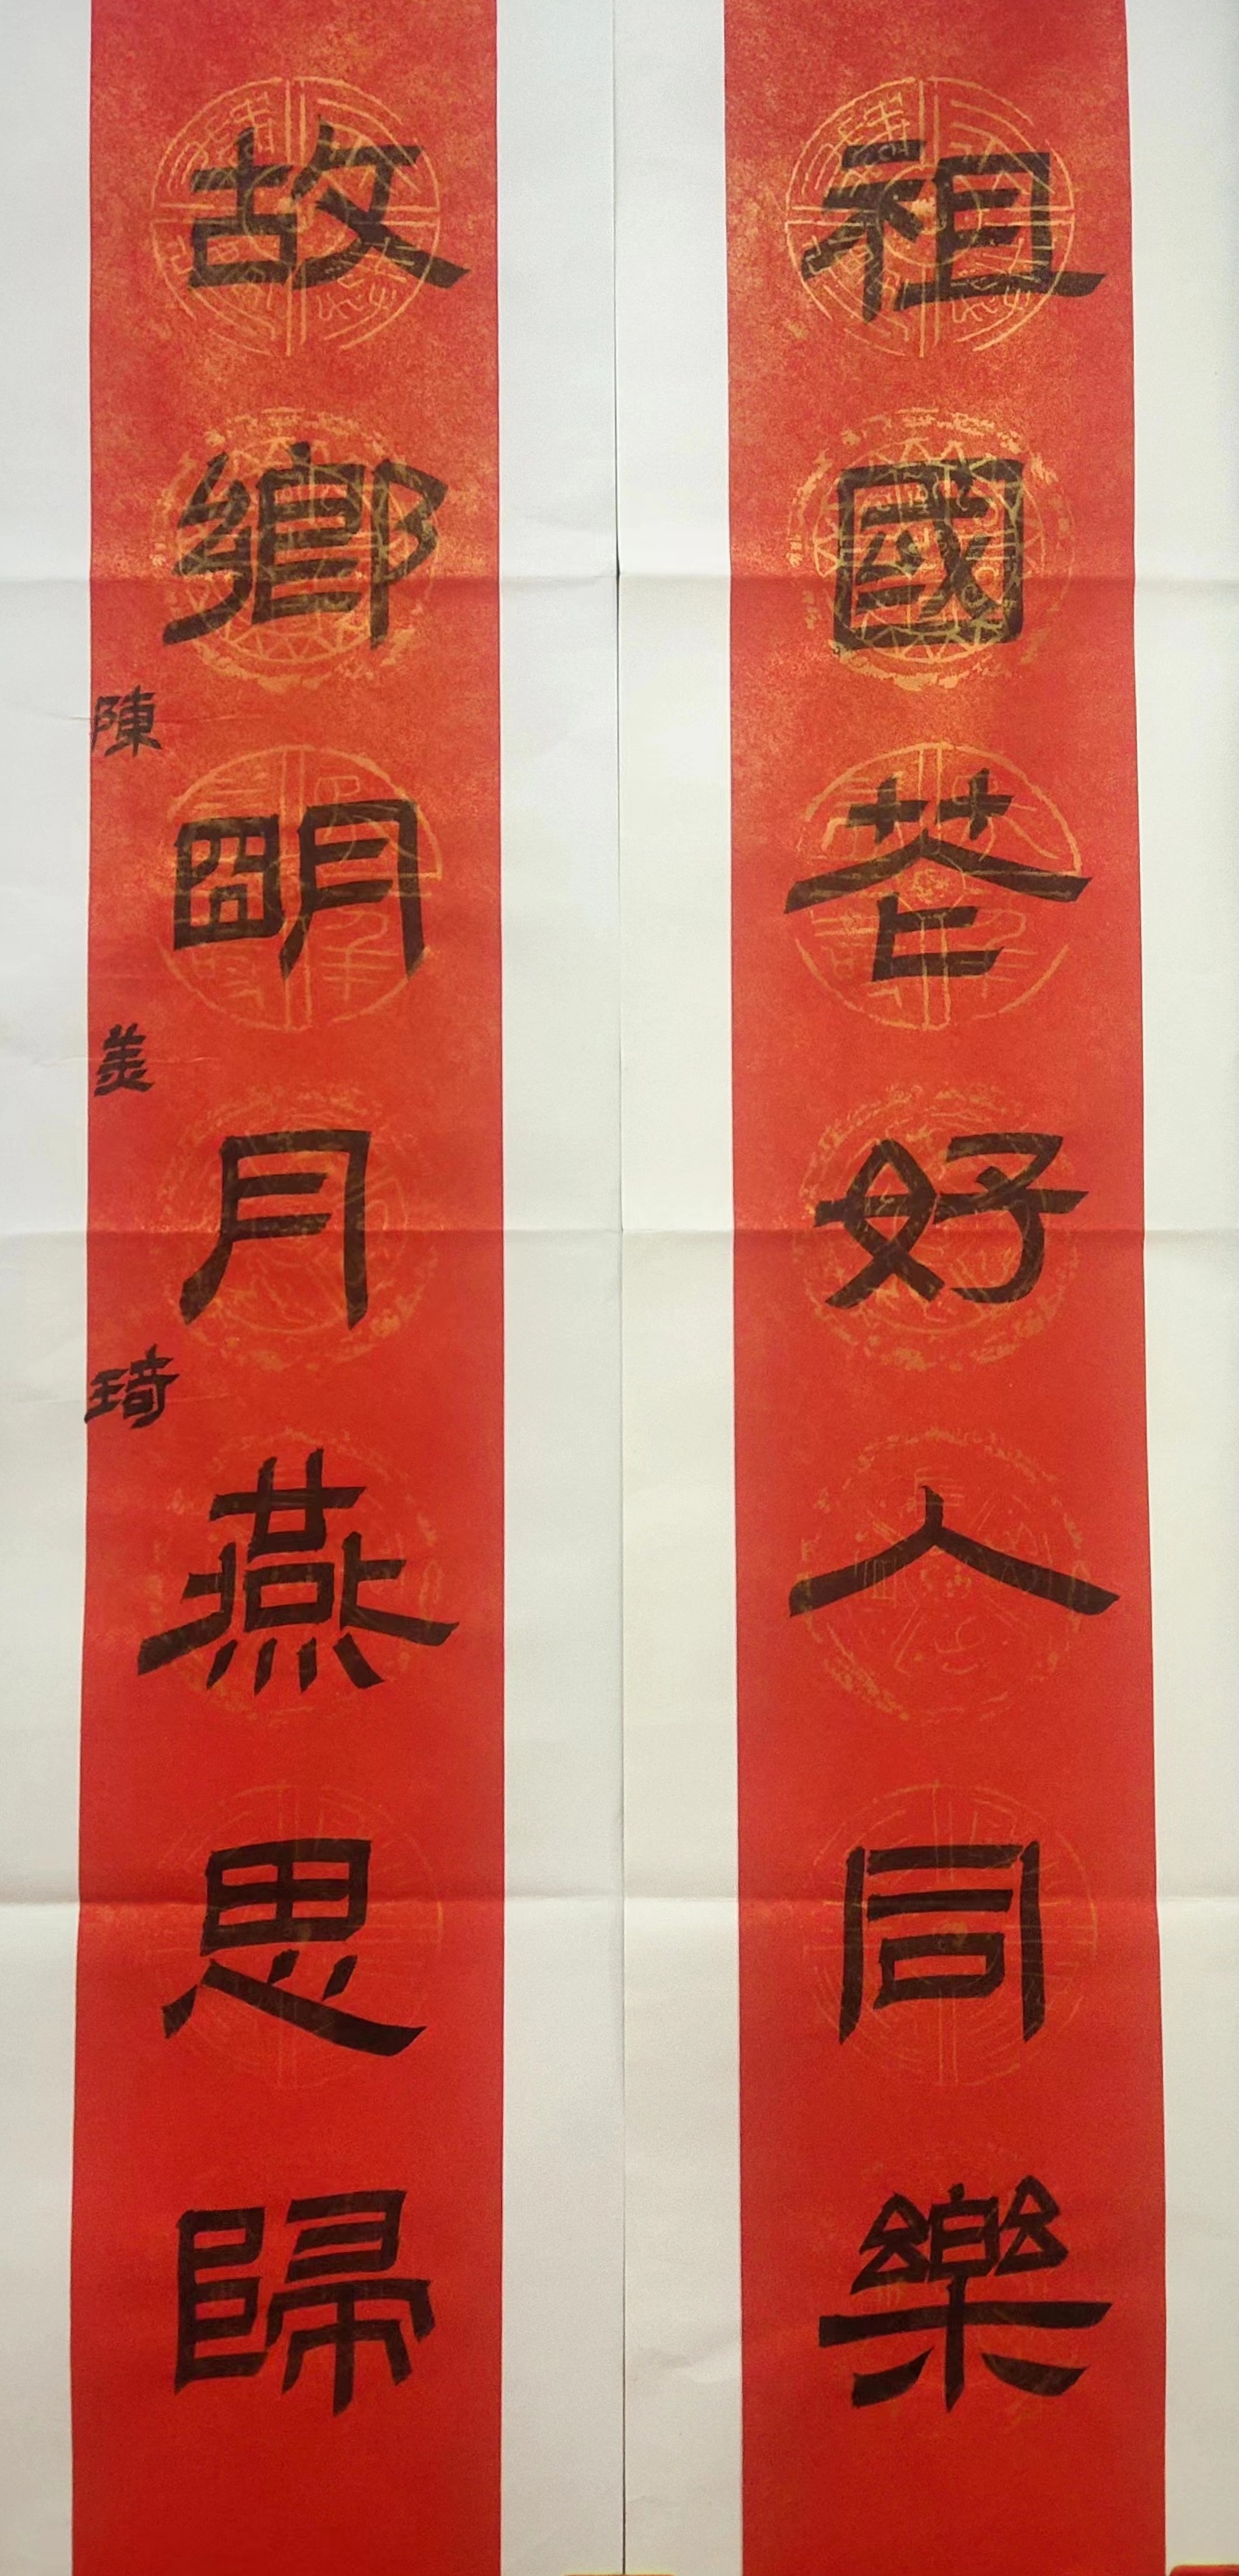 祖國花好人同樂
故鄉明月燕思歸
陳美琦